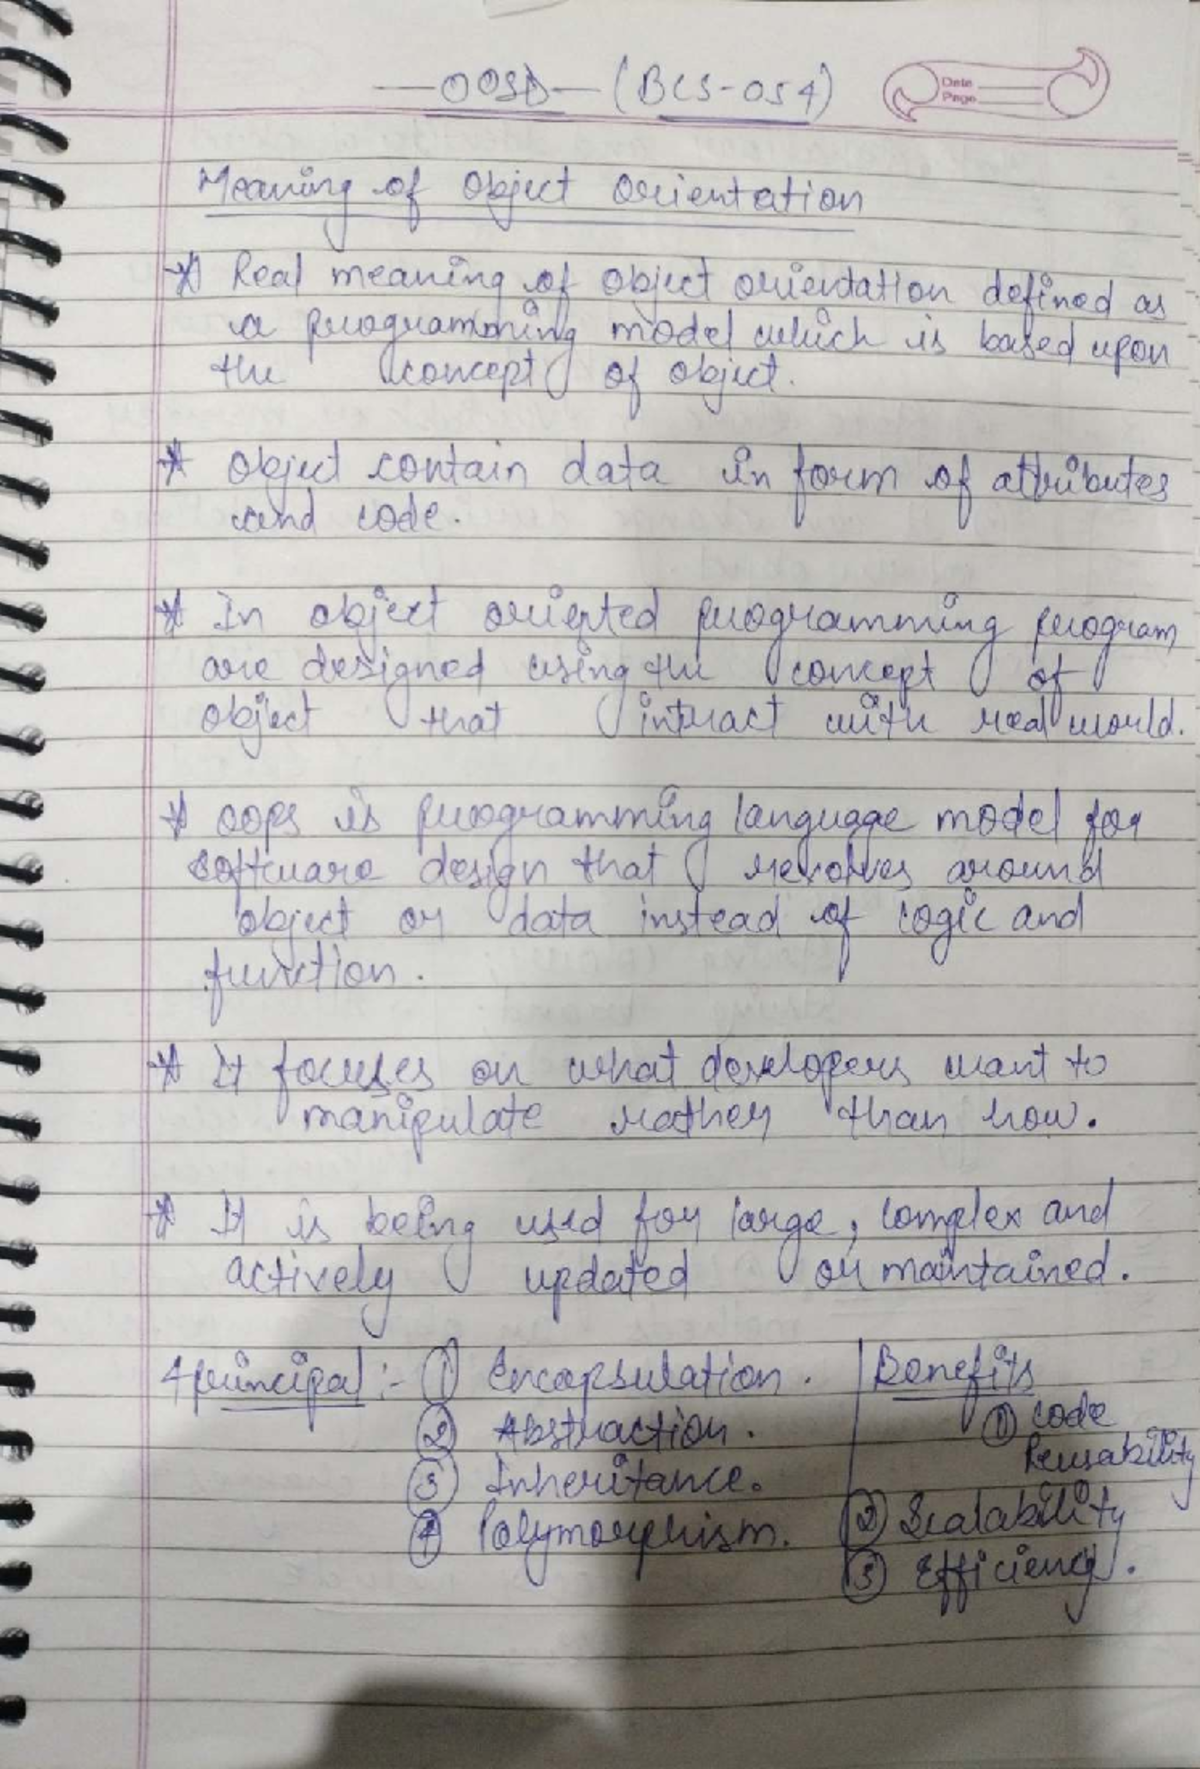 OOSD (BCS-054)
Date
Page
Meaning of Object Orientation
* Real meaning of object orientation defined as
a programming model which is based upon
the concept of object.
* Object contain data in form of attributes
and code.
* In object oriented programming program
are designed using the concept of
object that interact with real world.
* OOPs is programming language model for
software design that revolves around
object or data instead of logic and
function.
* It focuses on what developers want to
manipulate rather than how.
* It is being used for large, complex and
actively updated or maintained.
4 principal :- ① Encapsulation.
② Abstraction.
③ Inheritance.
④ Polymorphism.
Benefits
① Code
Reusability
② Scalability
③ Efficiency.